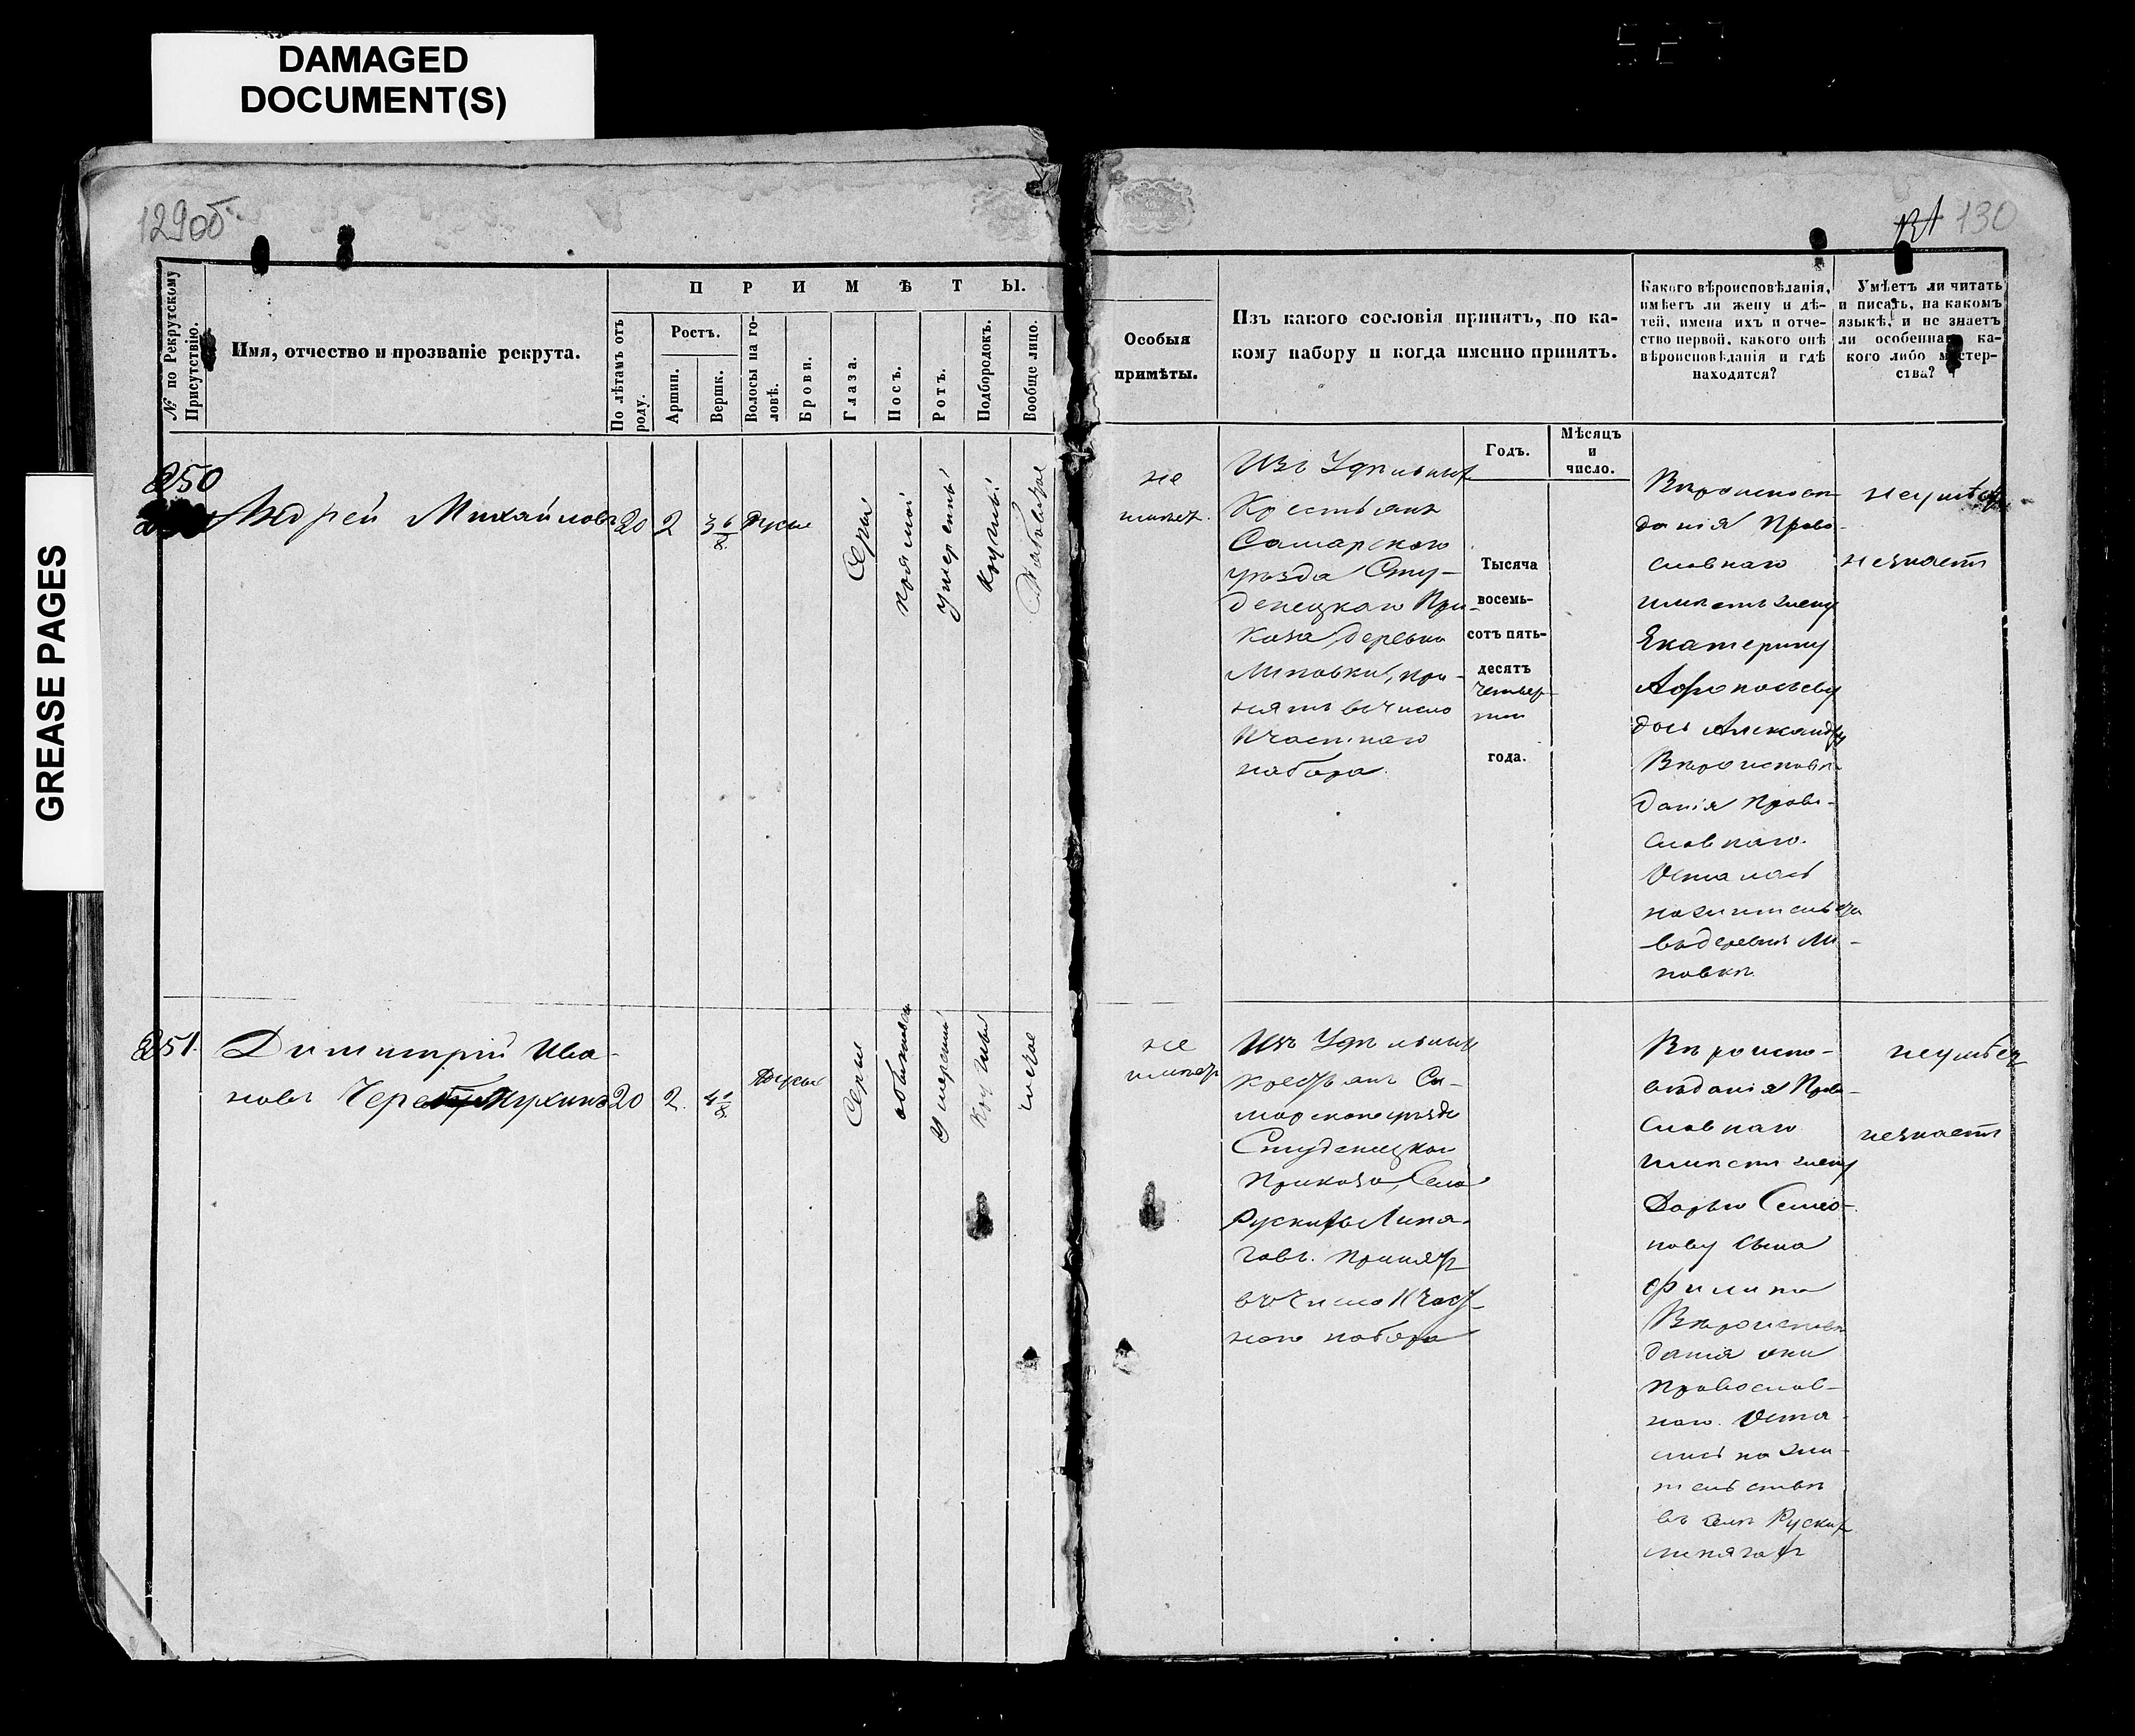 DAMAGED
DOCUMENT(S)
GREASE PAGES
129об
131 130
№ по Рекрутскому
Присутствію.
Имя, отчество и прозваніе рекрута.
ПРИМѢТЫ.
По лѣтамъ отъ
роду.
Ростъ.
Аршин.
Вершк.
Волосы на го-
ловѣ.
Брови.
Глаза.
Носъ.
Ротъ.
Подбородокъ.
Вообще лицо.
Особыя
примѣты.
Изъ какого сословія принятъ, по ка-
кому набору и когда именно принятъ.
Какого вѣроисповѣданія,
имѣетъ ли жену и дѣ-
тей, имена ихъ и отче-
ство первой, какого онѣ
вѣроисповѣданія и гдѣ
находятся?
Умѣетъ ли читать
и писать, на какомъ
языкѣ, и не знаетъ
ли особеннаго ка-
кого либо мастер-
ства?
Годъ.
Мѣсяцъ
и
число.
250
Андрей Михайловъ 20 2 3 6/8 Русые
Серы
прямой
умеренный
Круглый
не
имеет.
Изъ Удельных
Крестьянъ
Самарского
уезда Сту-
денецкаго При-
каза деревни
Липовки, при-
нятъ в число
Участнаго
набора.
Тысяча
восемь-
сотъ пять-
десятъ
четвер-
таго
года.
Вероисповѣ-
данія Право-
славнаго
имѣетъ жену
Екатерину
дочь Александру
Вѣроисповѣ-
данія Право-
славнаго.
Остались
на жительстве
въ деревнѣ Ли-
повкѣ
неумѣетъ
незнаетъ
251.
Димитрій Ива-
новъ Черемухинъ 20 2. 4 1/8 Русые
Серые
обыкновен
Умеренный
Круглый
чистое
не
имеетъ
Изъ Удельныхъ
крестьянъ Са-
марскаго уезда
Студенецкаго
Приказа, Села
Рускихъ Липя-
говъ. Принятъ
въ число Участ-
наго набора
Вероиспо-
веданія Право-
славнаго
имѣетъ жену
Дарью Семіо-
нову сына
Филипа
Вероисповѣ-
данія они
православ-
наго. Оста-
лись на жи-
тельстве
въ селе Рускихъ
липягахъ
неумѣетъ
незнаетъ